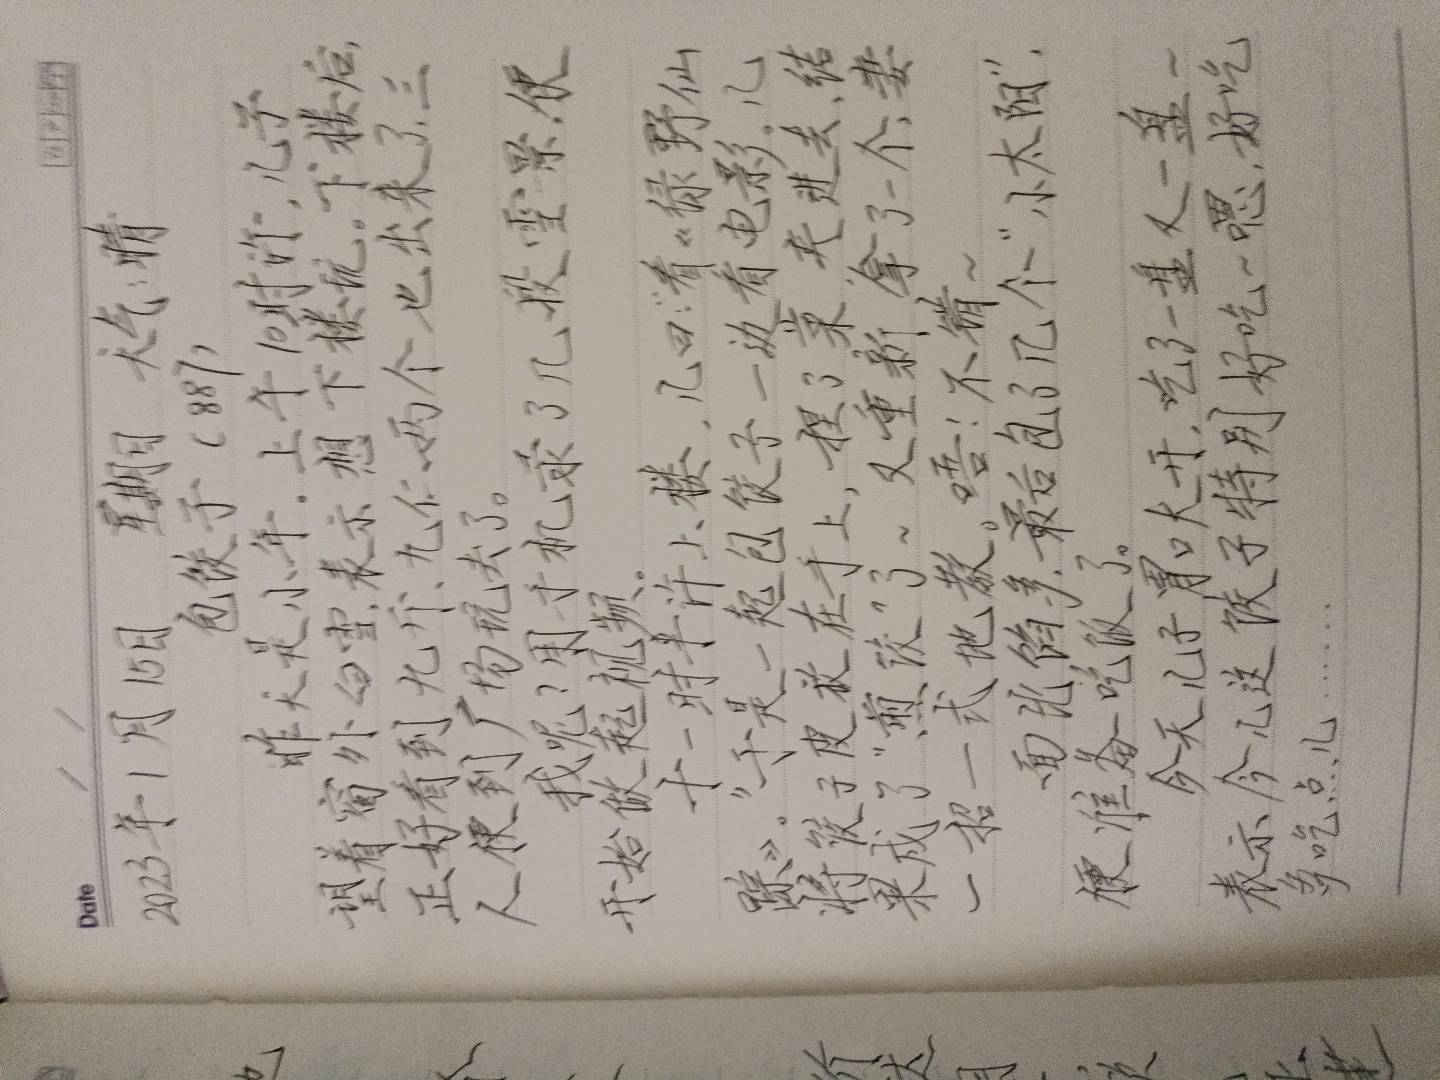 Date
2023年1月15日 星期日 天气:晴
包饺子(887)
昨天是小年。上午10时许,儿子
望着窗外白雪,表示想下楼玩。下楼后,
正好看到九斤、九仁两个也出来了,三
人便到广场玩去了。
我呢?用手机录了几段雪景,便
开始做起视频。
十一时半许上楼,儿曰:"看《绿野仙
踪》。"于是一起包饺子一边看电影。儿
将饺子皮放在手上,捏了菜,夹进去,结
果成了"煎饺"了~又重新拿了一个,妻
一招一式地教。唔!不错~
面比馅多,最后包了几个"小太阳",
便准备吃饭了。
今天儿子胃口大开,吃了一盘又一盘~
表示今儿这饺子特别好吃~嗯,好吃
多吃点儿……